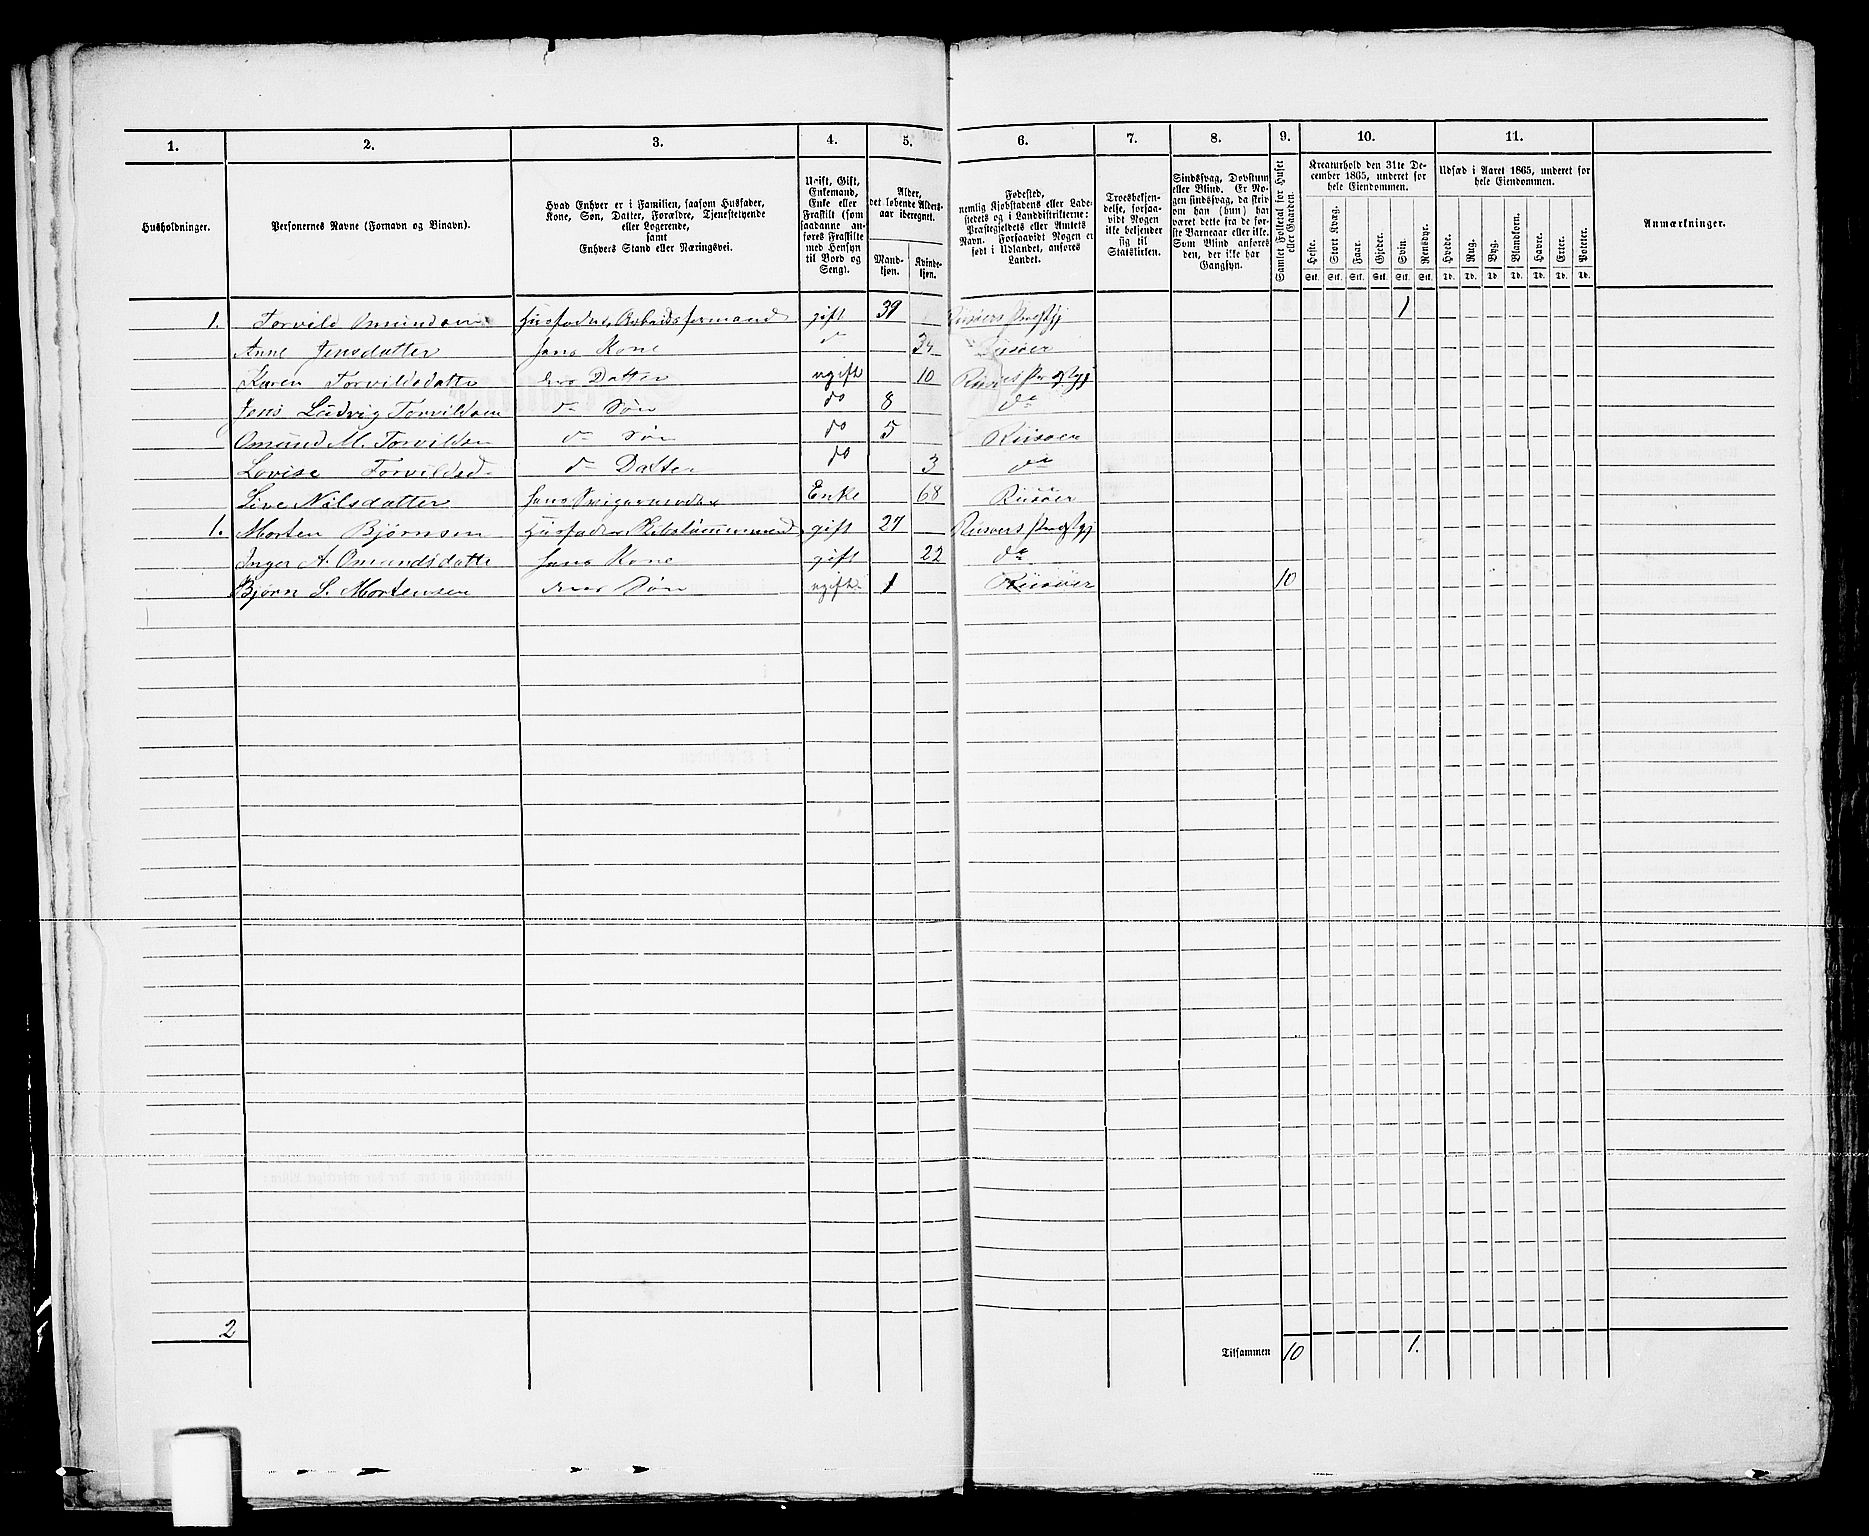 1. 2. 3. 4. 5. 6. 7. 8. 9. 10. 11.
Husholdninger.
Personernes Navne (Fornavn og Binavn).
Hvad Enhver er i Familien, saasom Husfader,
Kone, Søn, Datter, Forældre, Tjenestetyende
eller Logerende,
samt
Enhvers Stand eller Næringsvei.
Ugift, Gift,
Enkemand,
Enke eller
Fraskilt (som
saadanne an-
føres Fraskilte
med Hensyn
til Bord og
Seng).
Alder,
det løbende Alders-
aar iberegnet.
Mand-
kjøn.
Kvinde-
kjøn.
Fødested,
nemlig Kjøbstadens eller Lade-
stedets og i Landdistrikterne:
Præstegjeldets eller Amtets
Navn. Forsaavidt Nogen er
født i Udlandet, anføres
Landet.
Troesbekjen-
delse, forsaa-
vidt Nogen
ikke bekjender
sig til
Statskirken.
Sindssvag, Døvstum
eller Blind. Er No-
gen sindssvag, da skriv
om han (hun) har
været dette fra de før-
ste Barneaar eller ikke.
Som Blind anføres
den, der ikke har
Gangsyn.
Samlet Folketal for Huset
eller Gaarden.
Kreaturhold den 31te De-
cember 1865, underet for
hele Eiendommen.
Heste. Stort Kvæg. Faar. Gjeder. Svin. Rensdyr.
Stk. Stk. Stk. Stk. Stk. Stk.
Udsæd i Aaret 1865, underet for
hele Eiendommen.
Hvede. Rug. Byg. Blandkorn. Havre. Erter. Poteter.
Td. Td. Td. Td. Td. Td. Td.
Anmærkninger.
1. Torvild Omundsen Husfader, Arbeidsformand gift 39 Risøers Præstgj 1
Anne Jensdatter hans Kone do 34 Riisøer
Karen Torvildsdatte deres Datter ugift 10 Risøers Præstgj
Jens Ludvig Torvildsen do Søn do 8 do
Omund M. Torvildsen do Søn do 5 Riisøer
Lovise Torvildsd do Datter do 3 do
Live Nilsdatter hans Svigermoder Enke 68 Riisøer
1. Morten Bjørnsen Husfader, Skibstømmermand gift 27 Risøers Præstgj
Inger A. Omundsdatte hans Kone gift 22 do
Bjørn S. Mortensen deres Søn ugift 1 Riisøer 10
2
Tilsammen 10 1.